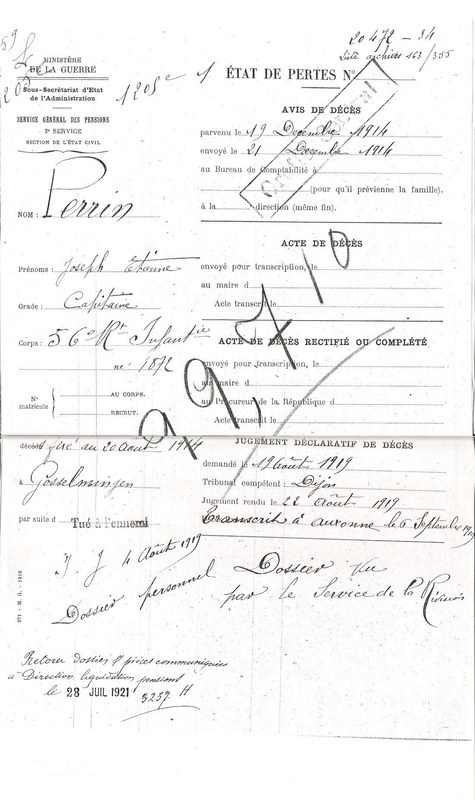 20472 - 34
Liste archives 163/355
MINISTÈRE
DE LA GUERRE
Sous-Secrétariat d'État
de l'Administration
SERVICE GÉNÉRAL DES PENSIONS
2e SERVICE
SECTION DE L'ÉTAT CIVIL
1205e 1
ÉTAT DE PERTES No
AVIS DE DÉCÈS
parvenu le 19 Décembre 1914
envoyé le 21 Décembre 1914
au Bureau de Comptabilité à
(pour qu'il prévienne la famille).
à la direction (même fin).
NOM : Perrin
Prénoms : Joseph Etienne
Grade : Capitaine
Corps : 56e Rt Infantie
né 1872
No matricule
AU CORPS.
RECRUT.
ACTE DE DÉCÈS
envoyé pour transcription, le
au maire d
Acte transcrit le
ACTE DE DÉCÈS RECTIFIÉ OU COMPLÉTÉ
envoyé pour transcription, le
au maire d
au Procureur de la République d
Acte transcrit le
99,710
décédé au 20 août 1914
à Gosselmingen
par suite d Tué à l'ennemi
JUGEMENT DÉCLARATIF DE DÉCÈS
demandé le 19 août 1919
Tribunal compétent : Dijon
Jugement rendu le 22 août 1919
transcrit à auxonne le 6 Septembre 1919
J. J 4 août 1919
Dossier personnel
Dossier vu
par le Service de la
271 - M. G. - 1919
Retour dossier & pièces communiquées
à Direction liquidation pensions
le 28 JUIL 1921
3237 H